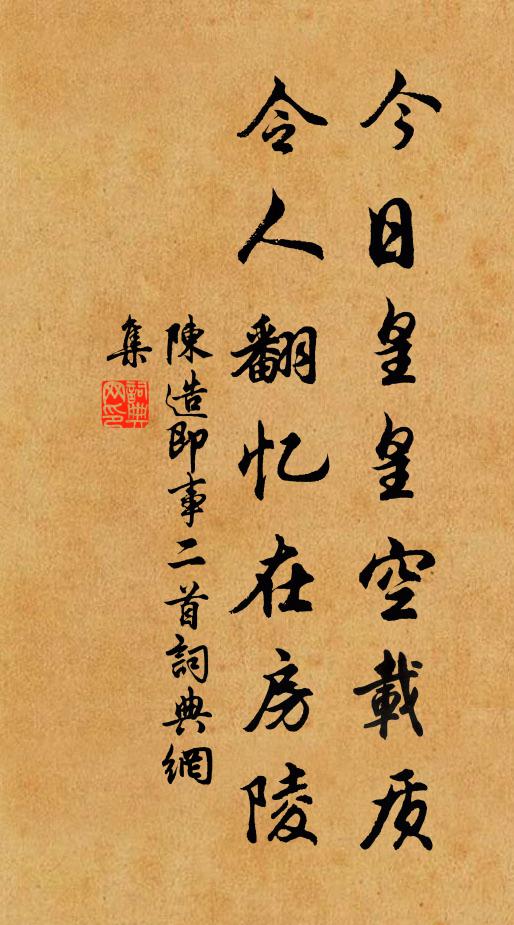 今日皇皇空載质
令人翻忆在房陵
陳造即事二首詞典網
集
詞典网印